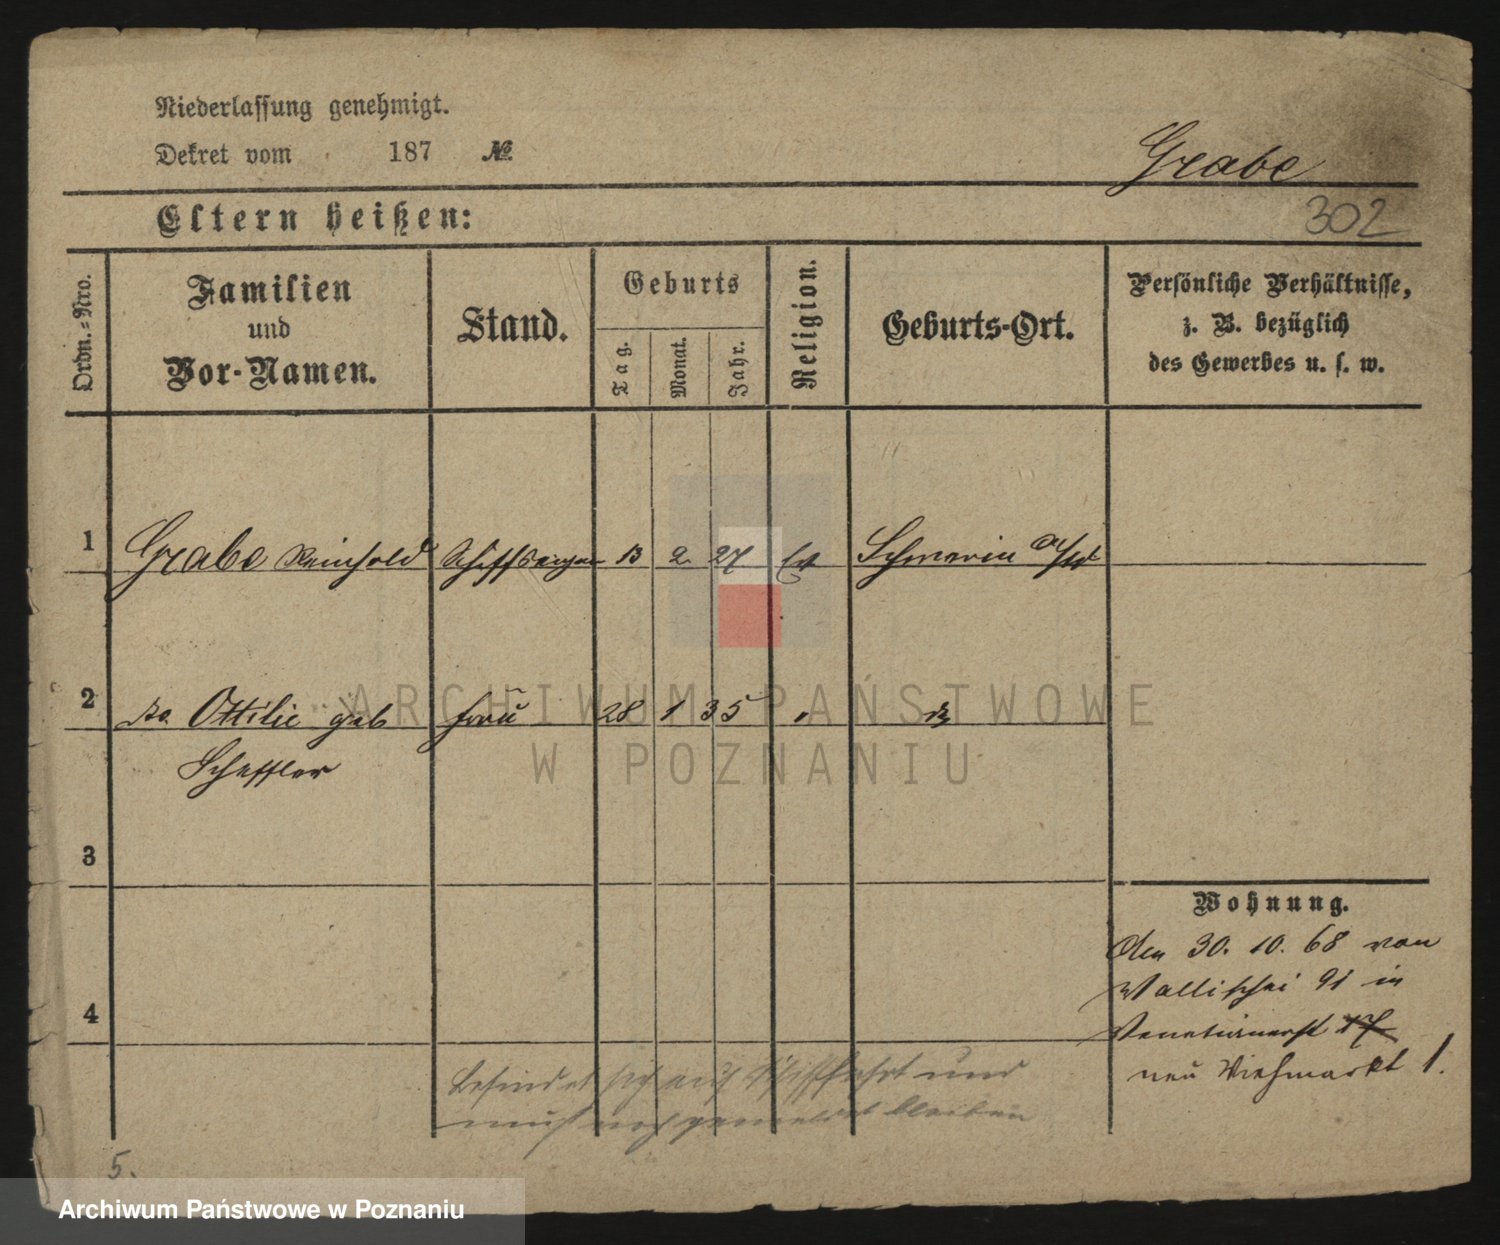 Niederlassung genehmigt.
Dekret vom 187 №
Grabe
302
Eltern heißen:
Ordn.=Nro.
Familien
und
Vor-Namen.
Stand.
Geburts
Tag.
Monat.
Jahr.
Religion.
Geburts-Ort.
Persönliche Verhältnisse,
z. B. bezüglich
des Gewerbes u. s. w.
1 Grabe Reinhold 13 2 27 Schwerin a/W
2 Ottilie geb Frau 28 1 35 "
Scheffler
3
Wohnung.
Den 30. 10. 68 von
Wallischei 91 in
4
Venetianerst 17
neu Viehmarkt 1.
befindet sich auf Schifffahrt und
muß noch gemeldet bleiben
5.
ARCHIWUM PAŃSTWOWE
W POZNANIU
Archiwum Państwowe w Poznaniu